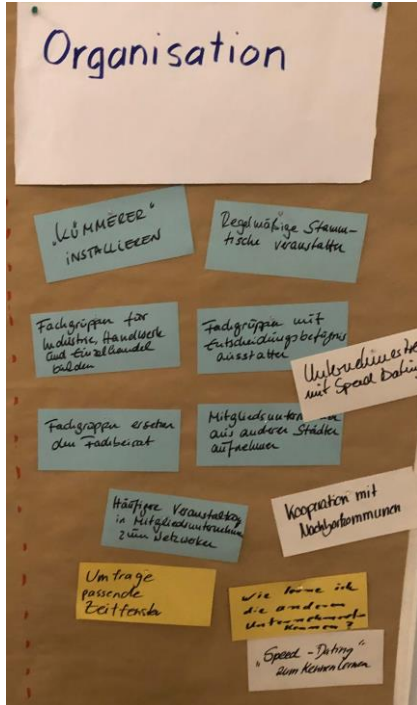 Organisation
„KÜMMERER“
INSTALLIEREN
Regelmäßige Stamm-
tische veranstalten
Fachgruppen für
Industrie, Handwerk
und Einzelhandel
bilden
Fachgruppen mit
Entscheidungsbefugnis
ausstatten
mit Speed Dating
Fachgruppen ersetzen
den Fachbeirat
aus anderen Städten
aufnehmen
Häufigere Veranstaltung
in Mitgliedsunternehmen
zum Netzwerken
Kooperation mit
Nachbarkommunen
Umfrage
passende
Zeitfenster
Wie lerne ich
die anderen
kennen?
„Speed-Dating“
zum Kennenlernen